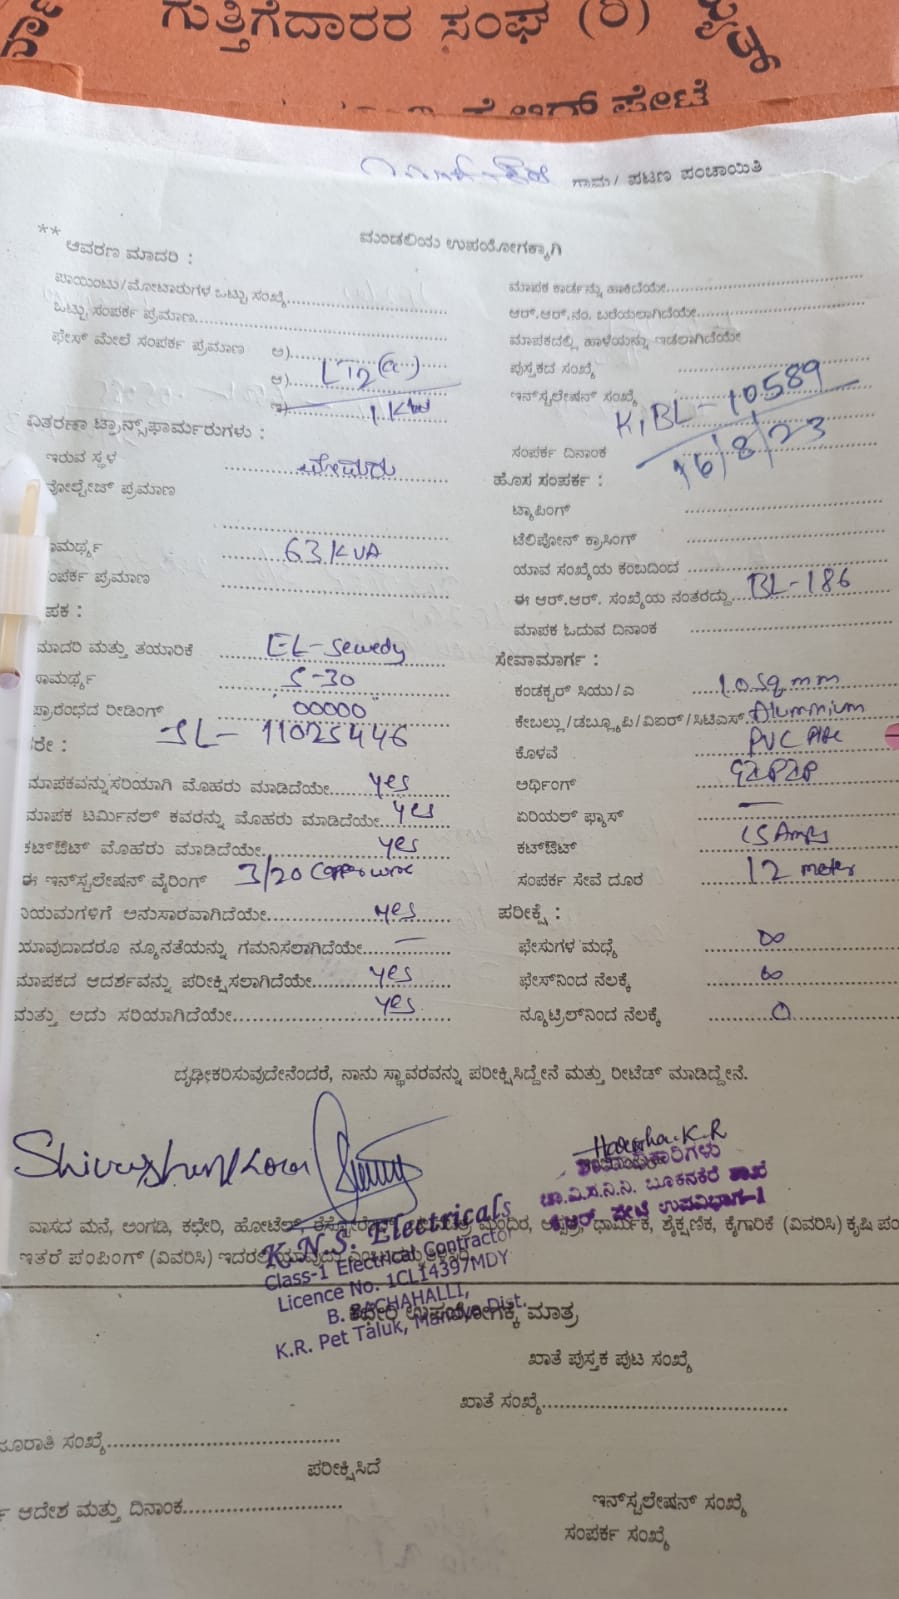 ಗುತ್ತಿಗೆದಾರರ ಸಂಘ (ರಿ)
ಪೇಟೆ
ಗ್ರಾಮ/ ಪಟಣ ಪಂಚಾಯಿತಿ
ಮಂಡಲಿಯ ಉಪಯೋಗಕ್ಕಾಗಿ
** ಆವರಣ ಮಾದರಿ :
ಪಾಯಿಂಟು/ಮೋಟಾರುಗಳ ಒಟ್ಟು ಸಂಖ್ಯೆ
ಒಟ್ಟು ಸಂಪರ್ಕ ಪ್ರಮಾಣ
ಫೇಸ್ ಮೇಲೆ ಸಂಪರ್ಕ ಪ್ರಮಾಣ ಅ)
ಆ) LT2(a)
ಇ) 1 KW
ವಿತರಣಾ ಟ್ರಾನ್ಸ್‌ಫಾರ್ಮರುಗಳು :
ಇರುವ ಸ್ಥಳ
ವೋಲ್ಟೇಜ್ ಪ್ರಮಾಣ
63 KVA
ಸಂಪರ್ಕ ಪ್ರಮಾಣ
ಮಾದರಿ ಮತ್ತು ತಯಾರಿಕೆ EL-Sewedy
5-30
ಪ್ರಾರಂಭದ ರೀಡಿಂಗ್ 00000
SL- 11025446
ಮಾಪಕವನ್ನು ಸರಿಯಾಗಿ ಮೊಹರು ಮಾಡಿದೆಯೇ yes
ಮಾಪಕ ಟರ್ಮಿನಲ್ ಕವರನ್ನು ಮೊಹರು ಮಾಡಿದೆಯೇ yes
ಕಟ್‌ಔಟ್ ಮೊಹರು ಮಾಡಿದೆಯೇ yes
ಈ ಇನ್‌ಸ್ಟಲೇಷನ್ ವೈರಿಂಗ್ 3/20 Copper wire
ನಿಯಮಗಳಿಗೆ ಅನುಸಾರವಾಗಿದೆಯೇ yes
ಯಾವುದಾದರೂ ನ್ಯೂನತೆಯನ್ನು ಗಮನಿಸಲಾಗಿದೆಯೇ —
ಮಾಪಕದ ಆದರ್ಶವನ್ನು ಪರೀಕ್ಷಿಸಲಾಗಿದೆಯೇ yes
ಮತ್ತು ಅದು ಸರಿಯಾಗಿದೆಯೇ yes
ಮಾಪಕ ಕಾರ್ಡನ್ನು ಹಾಕಿದೆಯೇ
ಆರ್.ಆರ್.ನಂ. ಬರೆಯಲಾಗಿದೆಯೇ
ಮಾಪಕದಲ್ಲಿ ಹಾಳೆಯನ್ನು ಇಡಲಾಗಿದೆಯೇ
ಪುಸ್ತಕದ ಸಂಖ್ಯೆ
ಇನ್‌ಸ್ಟಲೇಷನ್ ಸಂಖ್ಯೆ KIBL-10589
ಸಂಪರ್ಕ ದಿನಾಂಕ 16/8/23
ಹೊಸ ಸಂಪರ್ಕ :
ಟ್ಯಾಪಿಂಗ್
ಟೆಲಿಫೋನ್ ಕ್ರಾಸಿಂಗ್
ಯಾವ ಸಂಖ್ಯೆಯ ಕಂಬದಿಂದ
ಈ ಆರ್.ಆರ್. ಸಂಖ್ಯೆಯ ನಂತರದ್ದು BL-186
ಮಾಪಕ ಓದುವ ದಿನಾಂಕ
ಸೇವಾಮಾರ್ಗ :
ಕಂಡಕ್ಟರ್ ಸಿಯು/ಎ 10 Sq mm
ಕೇಬಲ್ಲು/ಡಬ್ಲ್ಯೂಪಿ/ವಿಐಆರ್/ಸಿಟಿಎಸ್ Alumnium
ಕೊಳವೆ PVC PIPE
ಅರ್ಥಿಂಗ್
ಏರಿಯಲ್ ಫ್ಯೂಸ್ —
ಕಟ್‌ಔಟ್ 15 Amps
ಸಂಪರ್ಕ ಸೇವೆ ದೂರ 12 meter
ಪರೀಕ್ಷೆ :
ಫೇಸುಗಳ ಮಧ್ಯೆ ∞
ಫೇಸ್‌ನಿಂದ ನೆಲಕ್ಕೆ ∞
ನ್ಯೂಟ್ರಿಲ್‌ನಿಂದ ನೆಲಕ್ಕೆ 0
ದೃಢೀಕರಿಸುವುದೇನೆಂದರೆ, ನಾನು ಸ್ಥಾವರವನ್ನು ಪರೀಕ್ಷಿಸಿದ್ದೇನೆ ಮತ್ತು ರೀಟೆಡ್ ಮಾಡಿದ್ದೇನೆ.
Harsha.K.R
ಚಾ.ವಿ.ಸ.ನಿ.ನಿ. ಬೂಕನಕೆರೆ ಶಾಖೆ
ಕೆ.ಆರ್. ಪೇಟೆ ಉಪವಿಭಾಗ-1
ವಾಸದ ಮನೆ, ಅಂಗಡಿ, ಕಛೇರಿ, ಹೋಟೆಲ್, ಮಂದಿರ, ಆಸ್ಪತ್ರೆ, ಧಾರ್ಮಿಕ, ಶೈಕ್ಷಣಿಕ, ಕೈಗಾರಿಕೆ (ವಿವರಿಸಿ) ಕೃಷಿ
ಇತರೆ ಪಂಪಿಂಗ್ (ವಿವರಿಸಿ)
K.N.S. Electricals
Class-1 Electrical Contractor
Licence No. 1CL14397MDY
B. BACHAHALLI,
K.R. Pet Taluk, Mandya Dist.
ಕಛೇರಿ ಉಪಯೋಗಕ್ಕೆ ಮಾತ್ರ
ಖಾತೆ ಪುಸ್ತಕ ಪುಟ ಸಂಖ್ಯೆ
ಖಾತೆ ಸಂಖ್ಯೆ
ಸಂಖ್ಯೆ
ಪರೀಕ್ಷಿಸಿದೆ
ಆದೇಶ ಮತ್ತು ದಿನಾಂಕ
ಇನ್‌ಸ್ಟಲೇಷನ್ ಸಂಖ್ಯೆ
ಸಂಪರ್ಕ ಸಂಖ್ಯೆ